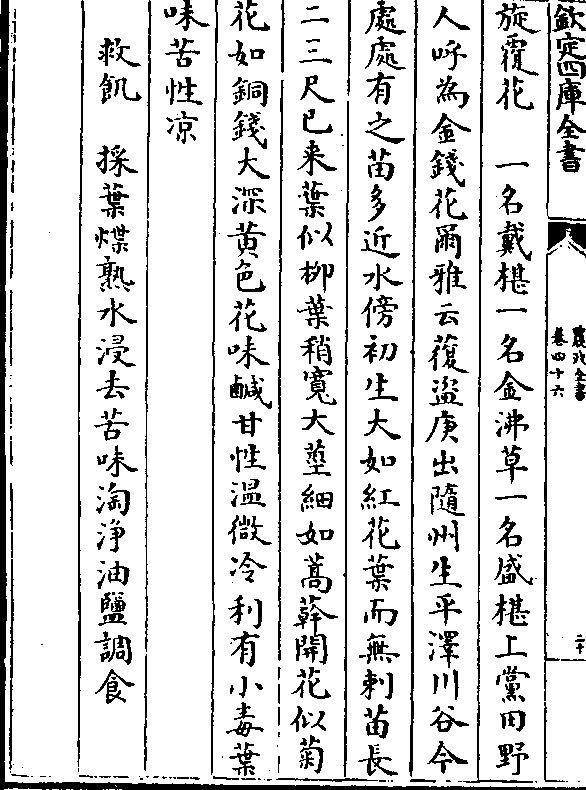 欽定四庫全書
農政全書
卷四十六
二十
旋覆花　一名戴椹一名金沸草一名盛椹上黨田野
人呼為金錢花爾雅云蕧盜庚出隨州生平澤川谷今
處處有之苗多近水傍初生大如紅花葉而無刺苗長
二三尺已来葉似柳葉稍寬大莖細如蒿簳開花似菊
花如銅錢大深黄色花味鹹甘性温微冷利有小毒葉
味苦性凉
救飢　採葉煠熟水浸去苦味淘浄油鹽調食